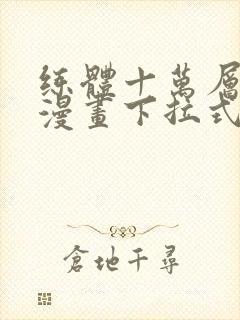 练體十萬層
漫畫下拉式
倉地千尋